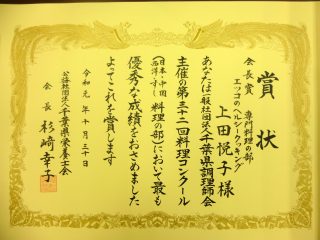 賞状
会長賞 専門料理の部
エツコのヘルシークッキング
上田悦子様
あなたは一般社団法人千葉県調理師会
主催の第三十二回料理コンクール
(日本・中国
西洋・すし 料理の部)において最も
優秀な成績をおさめました
よってこれを賞します
令和元年十月三十日
公益社団法人千葉県栄養士会
会長 杉﨑幸子